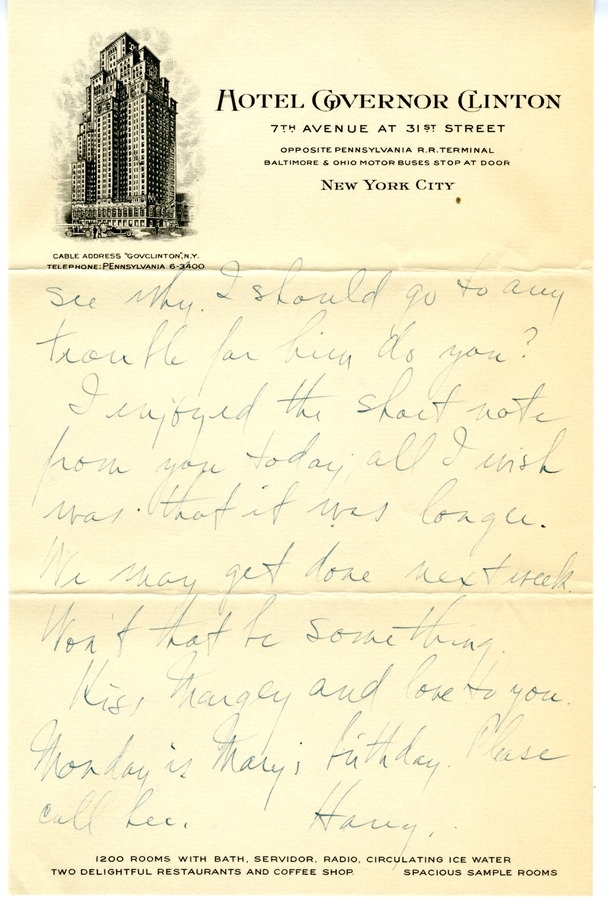 HOTEL GOVERNOR CLINTON
7TH AVENUE AT 31ST STREET
OPPOSITE PENNSYLVANIA R.R. TERMINAL
BALTIMORE & OHIO MOTOR BUSES STOP AT DOOR
NEW YORK CITY
CABLE ADDRESS "GOVCLINTON", N.Y.
TELEPHONE: PENNSYLVANIA 6-3400
see why. I should go to any
trouble for him do you?
I enjoyed the short note
from you today; all I wish
was that it was longer.
We may get done next week.
Won't that be something.
Kiss Margey and love to you.
Monday is Mary's birthday. Please
call her. Harry.
1200 ROOMS WITH BATH, SERVIDOR, RADIO, CIRCULATING ICE WATER
TWO DELIGHTFUL RESTAURANTS AND COFFEE SHOP. SPACIOUS SAMPLE ROOMS